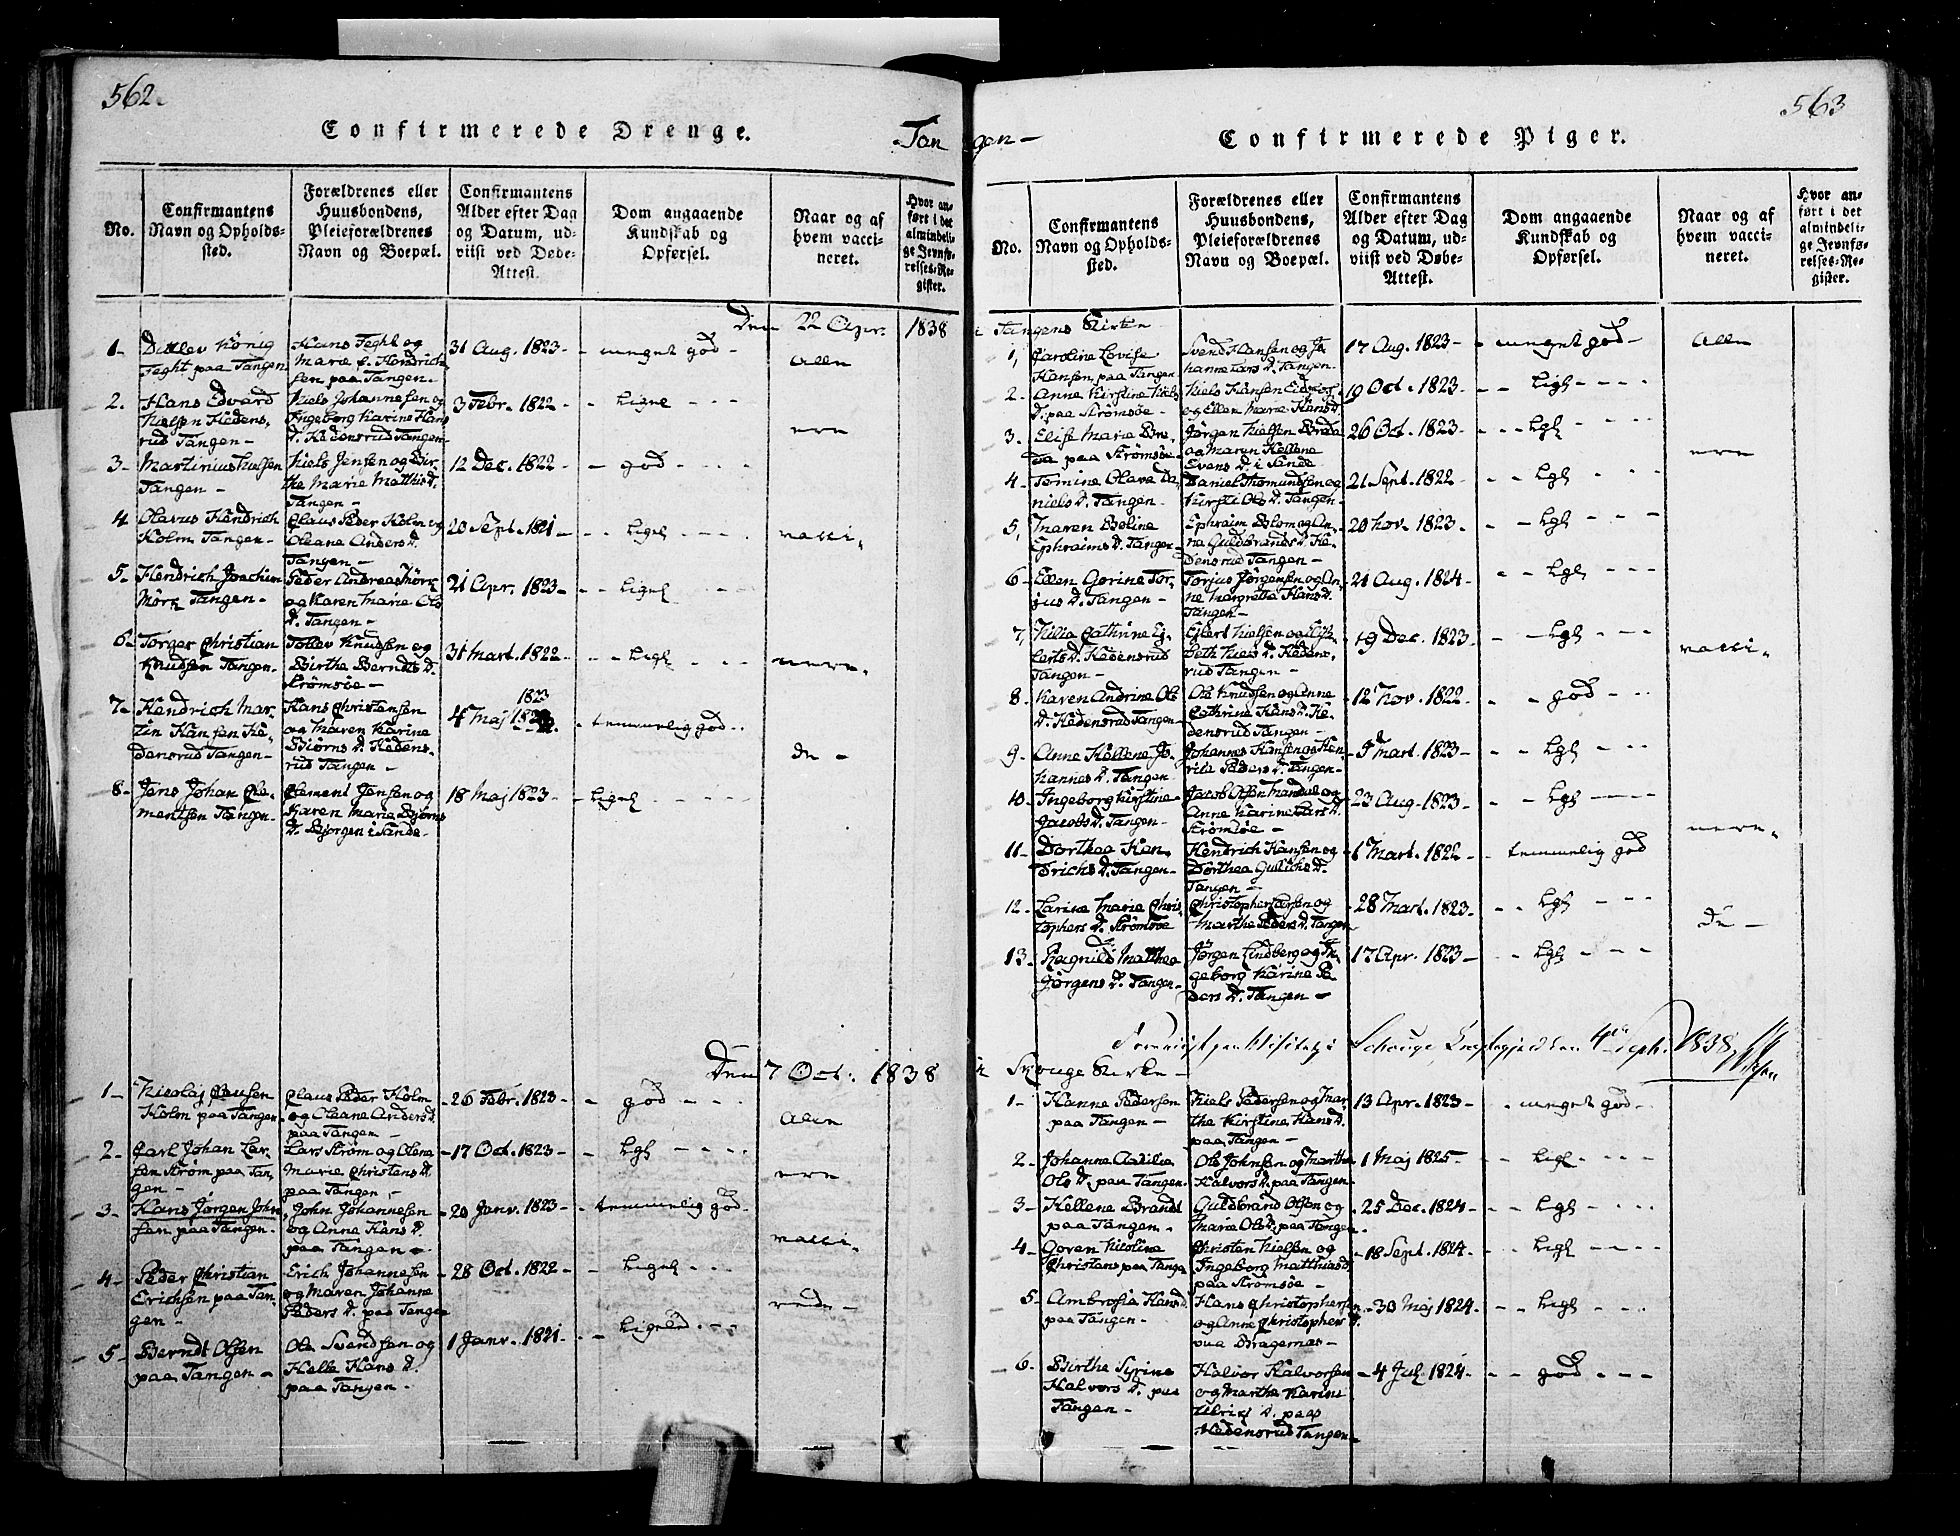 562.
Confirmerede Drenge.
Tan
No.
Confirmantens
Navn og Opholds-
sted.
Forældrenes eller
Huusbondens,
Pleieforældrenes
Navn og Boepæl.
Confirmantens
Alder efter Dag
og Datum, ud-
viist ved Døbe-
Attest.
Dom angaaende
Kundskab og
Opførsel.
Naar og af
hvem vacci-
neret.
Hvor an-
ført i det
almindeli-
ge Jevnfø-
relses-Re-
gister.
Den 22 Apr. 1838
1-
Ditlev König
Teght paa Tangen.
Hans Teght og
Marie f. Hendrich-
sen paa Tangen.
31 Aug. 1823-
- meget god -
Alle
2.
Hans Edvard
Nielsen Hedens,
rud Tangen-
Niels Johannesen og
Ingeborg Karine Hans
D. Hedensrud Tangen-
3 Febr. 1822-
- Ligel - - -
ere
3-
Martinius Nielsen
Tangen-
Niels Jensen og Bir-
the Marie Matthis D.
Tangen-
12 Dec. 1822-
- god - - -
4
Olavus Hendrich
Holm Tangen-
Claus Peder Holm og
Oleane Anders D.
Tangen-
20 Sept. 1821-
- - Ligel - - -
vacci,
5-
Hendrich Joachim
Mörk Tangen-
Peder Andreas Mörk
og Karen Marie Ols
D. Tangen-
21 Apr. 1823-
- Ligel - - -
6-
Torger Christian
Knudsen Tangen-
Tollev Knudsen og
Birthe Berndts D.
Strømsøe-
31 Mart. 1822-
- - Ligl - - -
nere,
7-
Hendrich Mar-
tin Hansen He-
densrud Tangen-
Hans Christensen
og Maren Karine
Biörns D. Hedens,
rud Tangen-
1823
4 Maj
- temmelig god -
de -
8-
Jens Johan Cle-
mentsen Tangen-
Clement Jensen og
Karen Marie Biörns
D. Bjorgen i Sande-
18 Maj 1823-
- Ligel - - -
Den 7 Oct. 1838
1-
Nicolaj Clausen
Holm paa Tangen
Claus Peder Holm
og Oleane Anders D.
paa Tangen-
26 Febr. 1823-
- god - - -
Alle
2.
Carl Johan Lar-
sen Strøm paa Tan-
gen-
Lars Strøm og Olene
Marie Christens D.
paa Tangen-
17 Oct. 1823-
- Lgl - - -
ere
3-
Hans Jörgen John
sen paa Tangen-
John Johannesen
og Anne Hans D.
paa Tangen-
20 Janv. 1823-
- temmelig god -
vacci,
4-
Peder Christian
Erichsen paa Tan-
gen-
Erich Johannesen
og Maren Johanne
Peders D. paa Tangen
28 Oct. 1822-
- Ligel - - -
5-
Berndt Olsen
paa Tangen-
Ole Svendsen og
Helle Hans D.
paa Tangen-
1 Janv. 1821-
563
gen-
Confirmerede Piger.
No.
Confirmantens
Navn og Opholds-
sted.
Forældrenes eller
Huusbondens,
Pleieforældrenes
Navn og Boepæl.
Confirmantens
Alder efter Dag
og Datum, ud-
viist ved Døbe-
Attest.
Dom angaaende
Kundskab og
Opførsel.
Naar og af
hvem vacci-
neret.
Hvor an-
ført i det
almindeli-
ge Jevnfø-
relses-Re-
gister.
i Tangens Kirke
1,
Caroline Lovise
Hansen paa Tangen
Svend Hansen og Jo
hanne Lars D. Tangen-
17 Aug. 1823-
- meget god-
Alle
2.
Anne Kirstine Niels
D. paa Strømsøe-
Niels Hansen
og Ellen Marie Hans D.
19 Oct. 1823-
- - Ligl - - -
3.
Elise Marie Bre,
da paa Strømsøe-
Jörgen Nielsen Breda
og Maren Hellene
Evens D. i Sande
26 Oct. 1823-
- - Lgl - - -
ere
4.
Tomine Olava Da
niels D. Tangen-
Daniel Thomundsen og
Kirsti Ols D. Tangen-
21 Sept. 1822-
- - Lgl - - -
5,
Maren Beline
Ephraims D. Tangen-
Ephraim Blom og An-
ne Guldbrands D. He-
densrud Tangen-
20 Nov. 1823-
- - Lgl - - -
6-
Ellen Gorine Tor-
jus D. Tangen-
Torjus Jörgensen og An-
ne Margrethe Hans D.
Tangen-
21 Aug. 1824-
- - Lgl - - -
7,
Julia Cathrine Ej-
lerts D. Hedensrud
Tangen-
Ejlert Nielsen og Elis-
beth Niels D. Hedens,
rud Tangen-
19 Dec. 1823-
- - Lgl - - -
vacci,
8
Karen Andrine Ols
D. Hedensrud Tangen-
Ole Knudsen og Anne
Cathrine Hans D. He-
densrud Tangen-
12 Nov. 1822-
- - god - - -
9-
Anne Hellene Jo-
hannes D. Tangen
Johannes Hansen og Hen-
Peders D. Tangen-
Mart. 1823-
- - Lgl - - -
10-
Ingeborg Kirstine
Jacobs D. Tangen-
Jacob Olsen og
Anne Karine Lars D.
Strømsøe-
23 Aug. 1823-
- - Lgl - - -
nere,
11-
Dorthea Hen-
drichs D. Tangen-
Hendrich Hansen og
Dorthea Gulichs D.
Tangen-
1 Mart. 1822-
- temmelig god
12-
Larine Marie Chris-
tophers D. Strømsøe
Christopher Larsen og
Marthe Peders D. Tangen
28 Mart. 1823-
- - Lgl - - -
de -
13-
Ragnild Matthea
Jörgens D. Tangen-
Jörgen Lindberg og In-
geborg Karine Pe-
ders D. Tangen-
17 Apr. 1823-
- - Lgl - - -
Foreviist paa Visitats i Schouge Præstegjeld den 4de Septb. 1838.
i Skouge Kirke-
1-
Hanne Pedersen
paa Tangen-
Niels Pedersen og Mar
the Kirstine Hans D.
paa Tangen-
13 Apr. 1823-
- meget god-
2-
Johanne
Ols D. paa Tangen.
Ole Johnsen og Marthe
Halvors D. paa Tangen
1 Maj 1825-
- Ligl - - -
3-
Hellene Brandt
paa Tangen-
Guldbrand Olsen og
Marie Ols D. paa Tangen
25 Dec. 1824-
- Lgl - - -
4-
Goren Nicoline
Christens paa Tange
Christen Nielsen og
Ingeborg Matthias D.
paa Strømsøe-
18 Sept. 1824-
- Ligl - - -
5-
Ambrosia Hans D.
paa Tangen-
Hans Christophersen
og Anne Christophers D.
paa Bragernæs-
30 Maj 1824-
- Ligl - - -
6.
Birthe Syrine
Halvors D. paa
Tangen-
Halvor Halvorsen
og Marthe Karine
Ulrics D. paa
Hedensrud Tangen-
4 Jul. 1824-
- god - - -